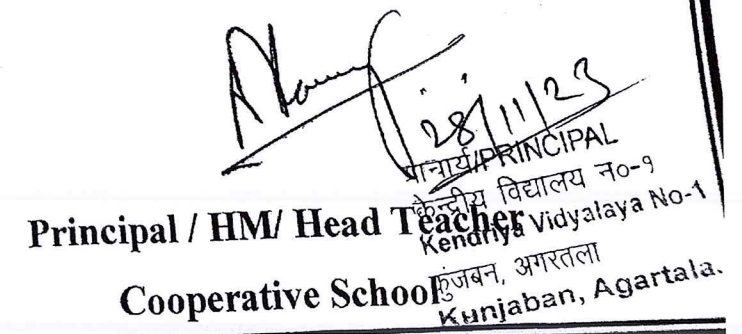 28/11/23
प्राचार्य/PRINCIPAL
केन्द्रीय विद्यालय न०-१
Kendriya Vidyalaya No-1
कुंजबन, अगरतला
Kunjaban, Agartala.
Principal / HM/ Head Teacher
Cooperative School